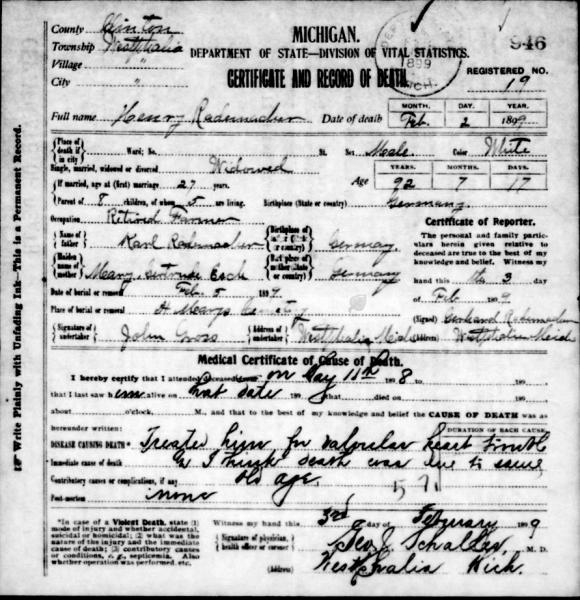 County Clinton
MICHIGAN.
946
Township Westphalia
DEPARTMENT OF STATE—DIVISION OF VITAL STATISTICS.
Village "
1899
City "
CERTIFICATE AND RECORD OF DEATH.
REGISTERED NO.
19
MICH.
Full name Henry Rademacher Date of death
MONTH. DAY. YEAR.
Feb. 2 1899
Place of death if in city Ward; No. St. Sex Male Color White
Single, married, widowed or divorced Widowed
YEARS. MONTHS. DAYS.
If married, age at (first) marriage 27 years. Age 92 7 17
Parent of 8 children, of whom 5 are living. Birthplace (State or country) Germany
Occupation Retired Farmer
Certificate of Reporter.
Name of father Karl Rademacher Birthplace of father (State or country) Germany
The personal and family particulars herein given relative to deceased are true to the best of my knowledge and belief. Witness my
Maiden name of mother Mary Gertrude Esch Birthplace of mother (State or country) Germany
hand this the 3
Date of burial or removal Feb 5 1899.
day of Feb 1899
Place of burial or removal St Marys Cemetery
(Signed) Gerhard Rademacher
Signature of undertaker John Gross Address of undertaker Westphalia Mich
(Address) Westphalia Mich
Medical Certificate of Cause of Death.
I hereby certify that I attended deceased from on May 11th 1898 to 189
that I last saw him on that date 189 , that died on 189
about o'clock, M., and that to the best of my knowledge and belief the CAUSE OF DEATH was as
hereunder written:
DURATION OF EACH CAUSE.
DISEASE CAUSING DEATH* Treated him for valvular heart trouble
Immediate cause of death & I think death was due to same
Contributory causes or complications, if any old age,
571
Post-mortem none
*In case of a Violent Death, state (1) mode of injury and whether accidental, suicidal or homicidal; (2) what was the nature of the injury and the immediate cause of death; (3) contributory causes or conditions, e. g., septicemia. Also whether operation was performed, etc.
Witness my hand this 3rd day of February 1899
Signature of physician, health officer or coroner Geo. J. Schaller, M. D.
(Address) Westphalia Mich.
Write Plainly with Unfading Ink—This is a Permanent Record.